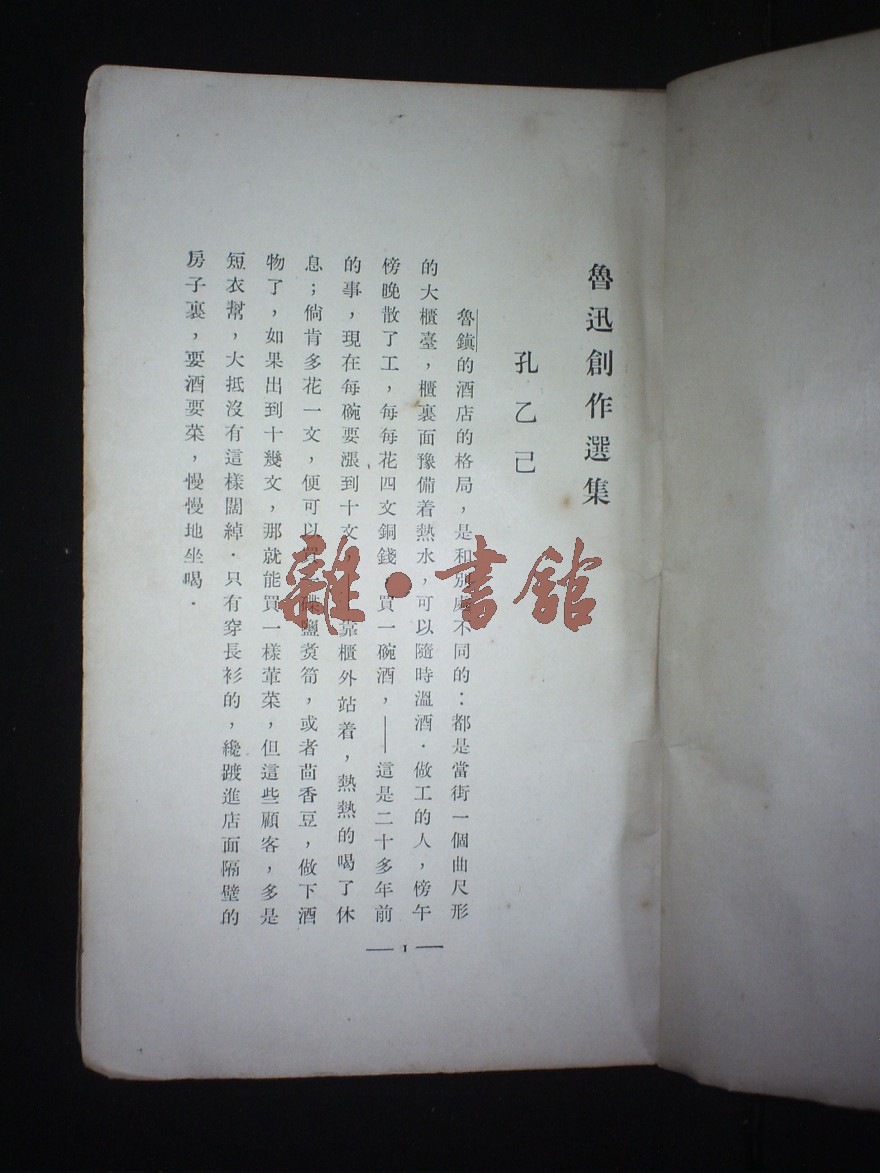 魯迅創作選集
孔乙己
魯鎮的酒店的格局，是和別處不同的：都是當街一個曲尺形
的大櫃臺，櫃裏面豫備着熱水，可以隨時溫酒．做工的人，傍午
傍晚散了工，每每花四文銅錢，買一碗酒，——這是二十多年前
的事，現在每碗要漲到十文，靠櫃外站着，熱熱的喝了休
息；倘肯多花一文，便可以買一碟鹽煑筍，或者茴香豆，做下酒
物了，如果出到十幾文，那就能買一樣葷菜，但這些顧客，多是
短衣幫，大抵沒有這樣闊綽．只有穿長衫的，纔踱進店面隔壁的
房子裏，要酒要菜，慢慢地坐喝．
— 1 —
雜·書館